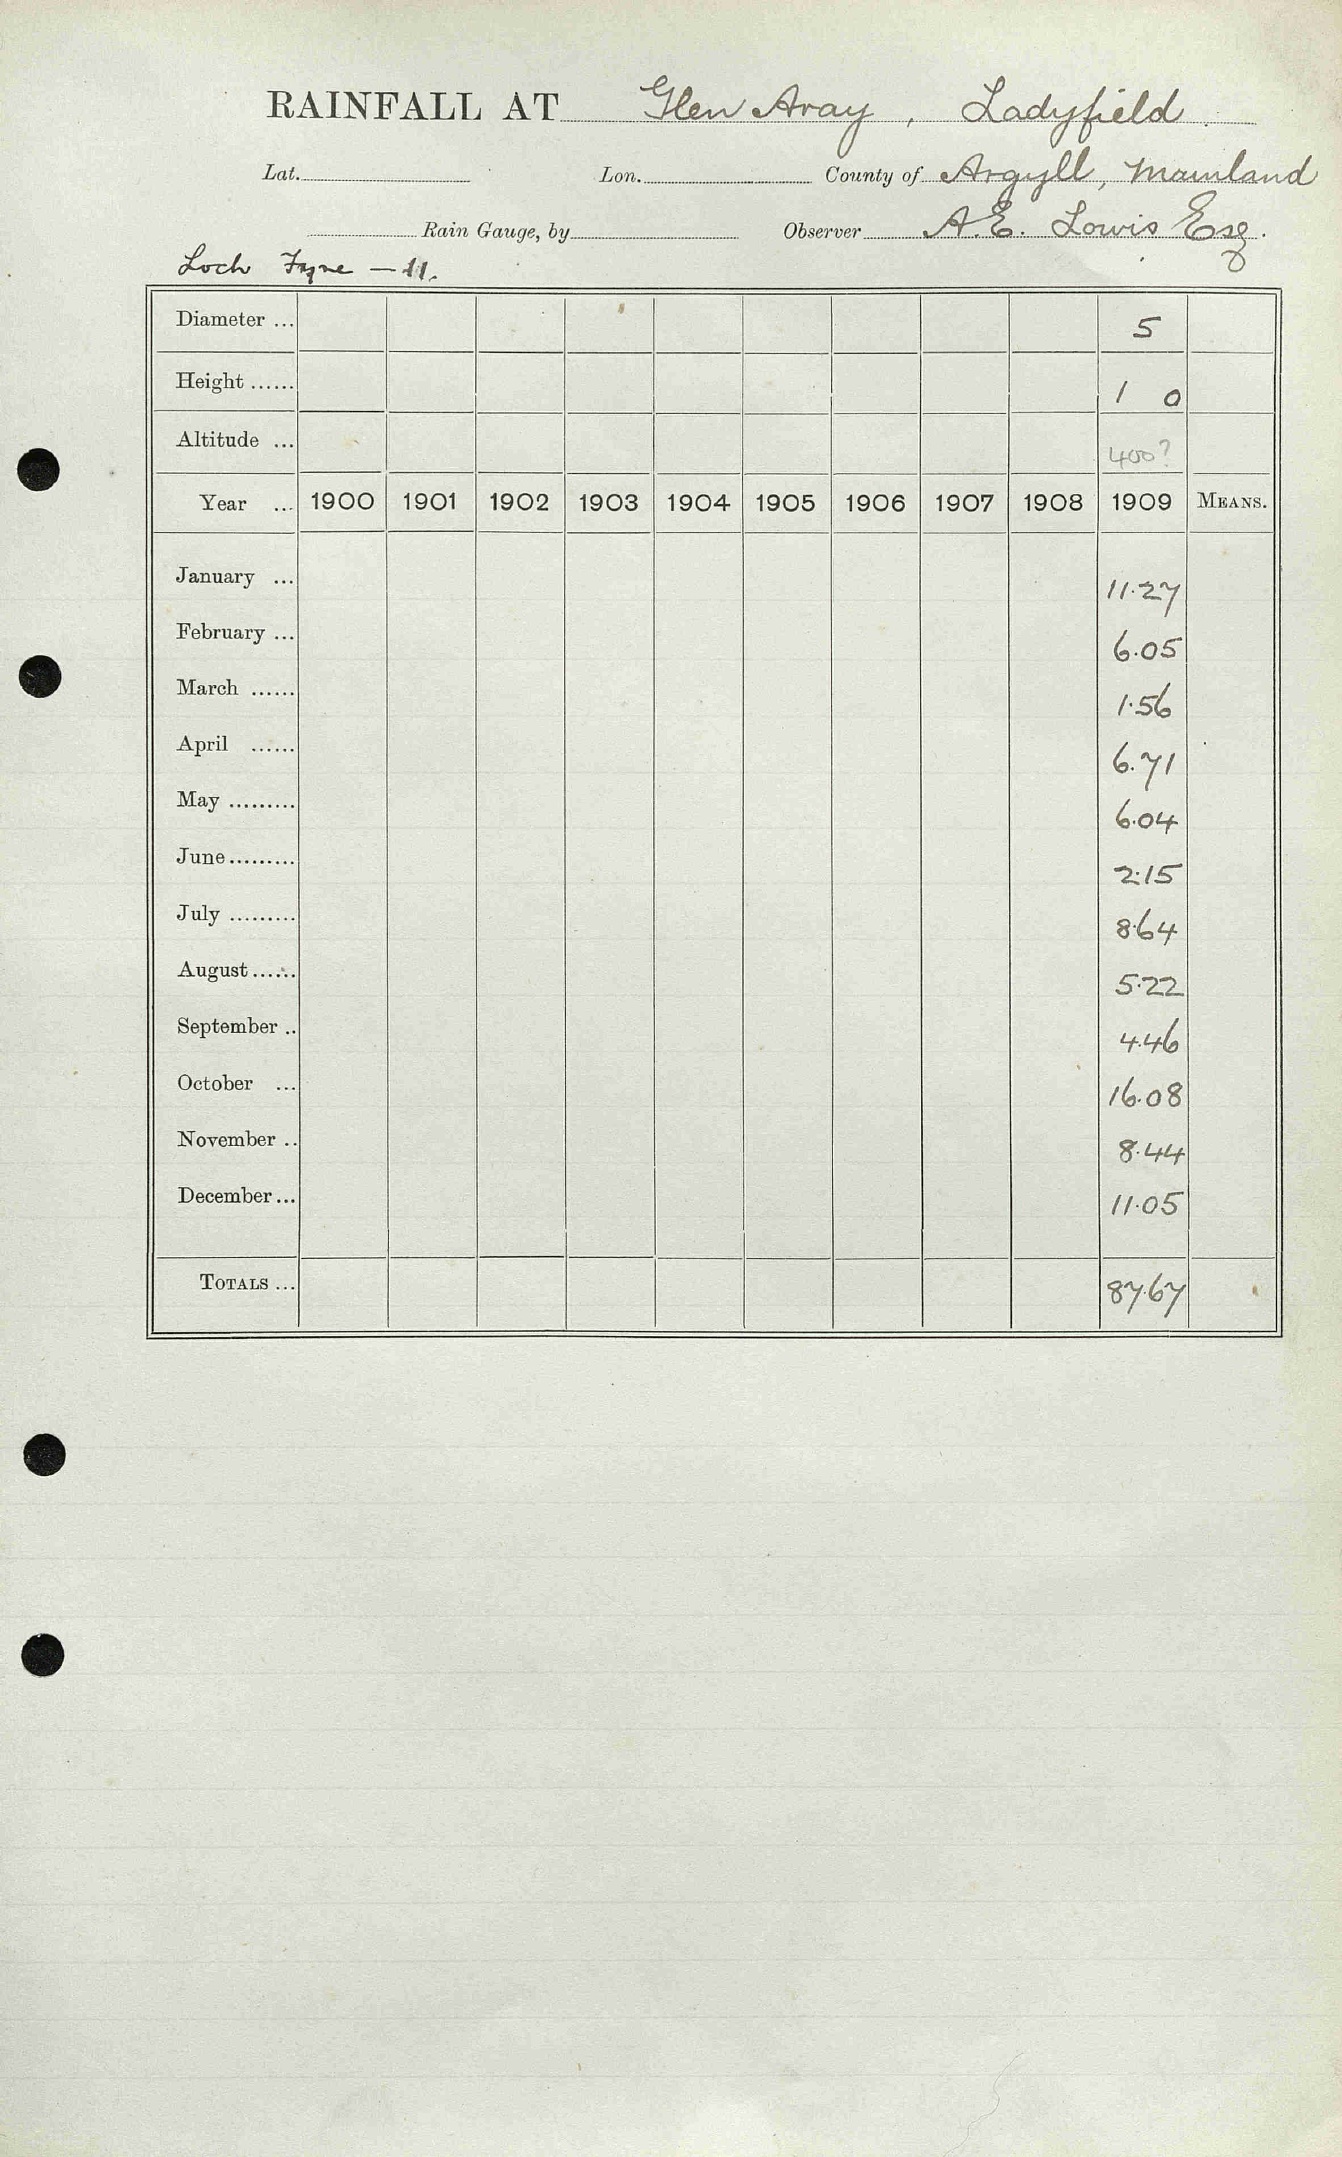 RAINFALL AT Glen Aray, Ladyfield.
Lat. Lon. County of Argyll, Mainland
Rain Gauge, by Observer A.E. Lowis Esq.
Loch Fyne – 11.
Diameter ... 5
Height ...... 1 0
Altitude ... 400?
Year ... 1900 1901 1902 1903 1904 1905 1906 1907 1908 1909 MEANS.
January ... 11.27
February ... 6.05
March ...... 1.56
April ...... 6.71
May ......... 6.04
June ......... 2.15
July ......... 8.64
August ...... 5.22
September .. 4.46
October ... 16.08
November .. 8.44
December ... 11.05
TOTALS ... 87.67